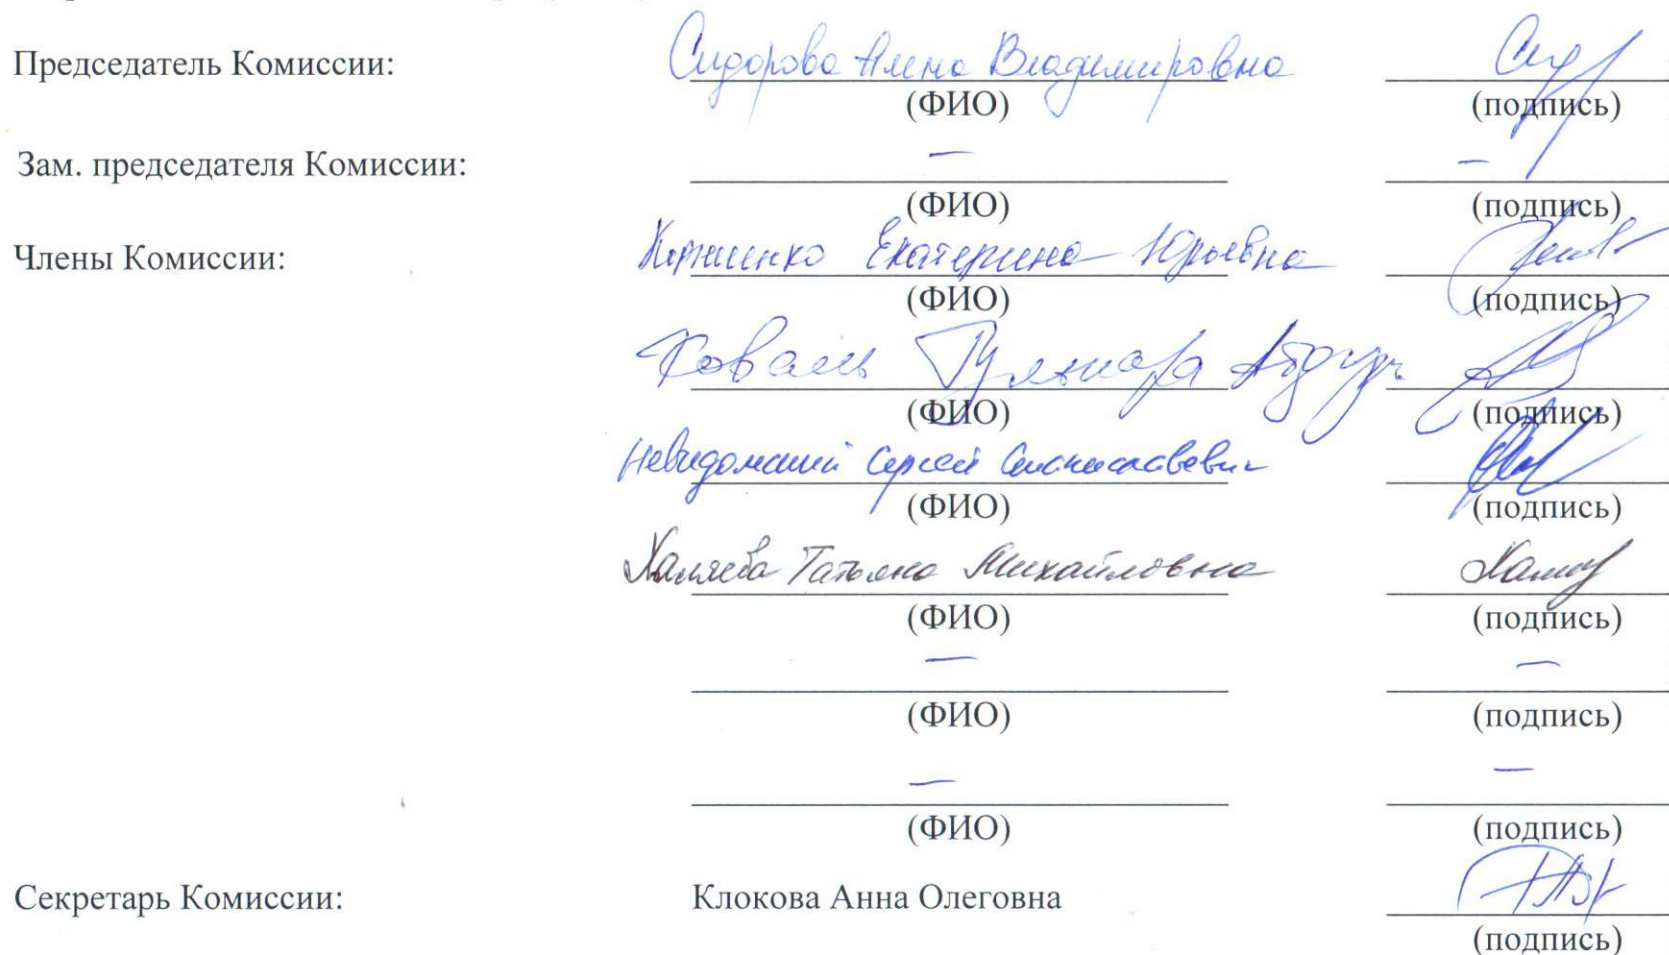 Председатель Комиссии: Сидорова Алена Владимировна
(ФИО) (подпись)
Зам. председателя Комиссии: — —
(ФИО) (подпись)
Члены Комиссии: Екатерина Юрьевна
(ФИО) (подпись)
Коваль Гульнара
(ФИО) (подпись)
Невидомский Сергей Станиславович
(ФИО) (подпись)
Халяева Татьяна Михайловна
(ФИО) (подпись)
— —
(ФИО) (подпись)
— —
(ФИО) (подпись)
Секретарь Комиссии: Клокова Анна Олеговна
(подпись)